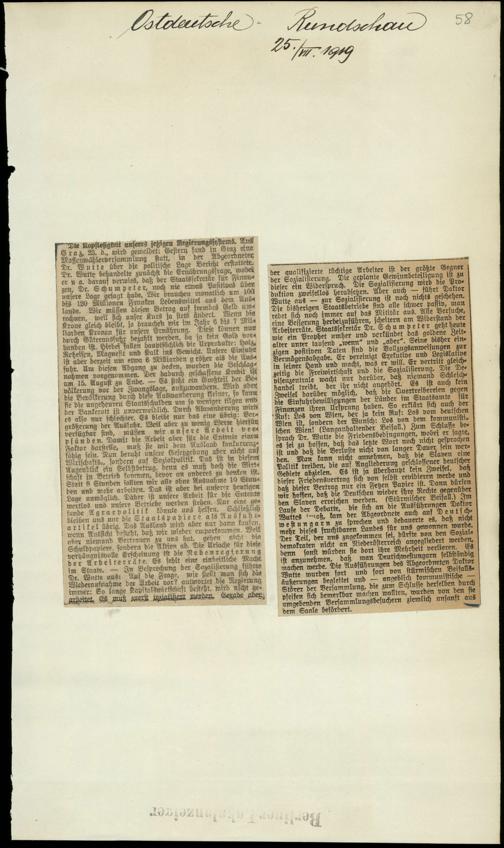 Ostdeutsche - Rundschau
58
25./VII. 1919
Die Kopflosigkeit unseres jetzigen Regierungssystems. Aus
Graz, 23. d., wird gemeldet: Gestern fand in Graz eine
Massenwählerversammlung statt, in der Abgeordneter
Dr. Wutte über die politische Lage Bericht erstattete.
Dr. Wutte behandelte zunächst die Ernährungsfrage, wobei
er u. a. darauf verwies, daß der Staatssekretär für Finan-
zen, Dr. Schumpeter, noch nie etwas Positives über
unsere Lage gesagt habe. Wir brauchen monatlich um 100
bis 120 Millionen Franken Lebensmittel aus dem Aus-
lande. Wie müssen diesen Betrag auf fremdes Geld um-
rechnen, weil sich außer Kurs so stellt. Wenn die
Krone gleich bleibt, so brauchen wir im Jahr 6 bis 7 Mil-
liarden Kronen für unsere Ernährung. Diese können nur
durch Güterausfuhr bezahlt werden, da ja kein Gold vor-
handen ist. Hiebei fallen hauptsächlich die Urprodukte: Holz,
Roheisen, Magnesit und Erze ins Gewicht. Unsere Einfuhr
ist aber derzeit um etwa 6 Milliarden größer als die Aus-
fuhr. Um diesen Abgang zu decken, wurden die Beschlag-
nahmen vorgenommen. Der dadurch geschaffene Kredit ist
am 15. August zu Ende. — Es steht ein Großteil der Be-
völkerung vor der Zwangslage, auszuwandern. Wird aber
die Bevölkerung durch diese Auswanderung kleiner, so kann
für die ungeheuren Staatsschulden um so weniger eingehen und
der Bankerott ist unvermeidlich. Durch Abwanderung wird
es also nur schlechter. Es bleibt nur das eine übrig: Ver-
größerung der Ausfuhr. Weil aber zu wenig Werte hierfür
verfügbar sind, müssen wir unsere Arbeit ver-
pfänden. Damit die Arbeit aber für die Entente einen
Faktor darstelle, muß sie mit dem Auslande konkurrenz-
fähig sein. Nun beruht unsere Gesetzgebung aber nicht auf
Wirtschafts-, sondern auf Sozialpolitik. Das ist in diesem
Augenblick ein Selbstbetrug, denn es muß doch die Wirt-
schaft in Betrieb kommen, bevor an anderes zu denken ist.
Statt 8 Stunden sollten wir alle ohne Ausnahme 10 Stun-
den und mehr arbeiten. Das ist aber bei unserer heutigen
Lage unmöglich. Daher ist unsere Arbeit für die Entente
wertlos und unsere Betriebe werden keinen Kredit finden.
Auch Agrarpolitik könnte uns helfen. Schließlich
bleiben uns nur die Staatspapiere als Ausfuhr-
artikel übrig. Das Ausland wird aber nur dann kaufen,
wenn Aussicht besteht, daß wir wieder emporkommen. Weil
aber niemand Vertrauen zu uns hat, gehen nicht die
Schuldpapiere, sondern die Aktien ab. Die Ursache für diese
verhängnisvolle Erscheinung ist die Nebenregierung
der Arbeiterräte. Es fehlt eine einheitliche Macht
im Staate. — In Besprechung der Sozialisierung führte
Dr. Wutte aus: Auf die Frage, wie stellt man sich die
Wiederaufnahme der Arbeit vor? antwortet die Regierung
immer: So lange Kapitalswirtschaft besteht, wird nicht ge-
arbeitet. Es muß mehr sozialisiert werden. Gerade aber
der qualifizierte tüchtige Arbeiter ist der größte Gegner
der Sozialisierung. Die geplante Gewinnbeteiligung ist zu
dieser ein Widerspruch. Die Sozialisierung wird die Pro-
duktion zweifellos beruhigen. Aber auch — führt Doktor
Wutte aus — zur Sozialisierung ist noch nicht geschehen.
Die bisherigen Staatsbetriebe sind alle immer passiv, man
redet sich noch immer auf das Militär aus. Alle Versuche,
eine Besserung herbeizuführen, scheitern am Widerstand der
Arbeiterräte. Staatssekretär Dr. Schumpeter geht heute
wie ein Prophet umher und verkündet das goldene Zeit-
alter unter tausend „wenn“ und „aber“. Seine bisher ein-
zigen positiven Taten sind die Vollzugsanweisungen zur
Vermögensabgabe. Er vereinigt Exekutive und Legislative
in seiner Hand und macht, was er will. Er vertritt gleich-
zeitig die Freiwirtschaft und die Sozialisierung. Die De-
visenzentrale wacht nur darüber, daß niemand Schleich-
handel treibt, der ihr nicht angehört. Es ist auch kein
Zweifel darüber möglich, daß die Quertreibereien gegen
die Einfuhrbewilligungen der Länder im Staatsamte für
Finanzen ihren Ursprung haben. So erklärt sich auch der
Ruf: Los von Wien, der ja kein Ruf: Los vom deutschen
Wien ist, sondern der Wunsch: Los von dem kommunisti-
schen Wien! (Langanhaltender Beifall.) Zum Schlusse be-
sprach Dr. Wutte die Friedensbedingungen, wobei er sagte,
es sei zu hoffen, daß das letzte Wort noch nicht gesprochen
ist und daß die Verluste nicht von langer Dauer sein wer-
den. Man kann nicht annehmen, daß die Slaven eine
Politik treiben, die auf Angliederung geschlossener deutscher
Gebiete abzielen. Es ist ja überhaupt kein Zweifel, daß
dieser Friedensvertrag sich von selbst revidieren werde und
daß dieser Vertrag nur ein Fetzen Papier ist. Dann dürfen
wir hoffen, daß die Deutschen wieder ihre Rechte gegenüber
den Slaven erreichen werden. (Stürmischer Beifall.) Im
Laufe der Debatte, die sich an die Ausführungen Doktor
Wuttes schloß, kam der Abgeordnete auch auf Deutsch-
westungarn zu sprechen und bedauerte es, daß nicht
mehr dieses fruchtbaren Landes für uns gewonnen wurde.
Der Teil, der uns zugekommen sei, dürfte von den Sozial-
demokraten nicht an Niederösterreich angegliedert werden,
denn sonst würden sie dort ihre Mehrheit verlieren. Es
ist anzunehmen, daß man Deutschwestungarn selbständig
machen werde. Die Ausführungen des Abgeordneten Doktor
Wutte wurden fort und fort von stürmischen Beifalls-
äußerungen begleitet und — angeblich kommunistische —
Störer der Versammlung, die zum Schlusse derselben durch
pfeifen sich bemerkbar machen wollten, wurden von den sie
umgebenden Versammlungsbesuchern ziemlich unsanft aus
dem Saale befördert.
Berliner Lokalanzeiger